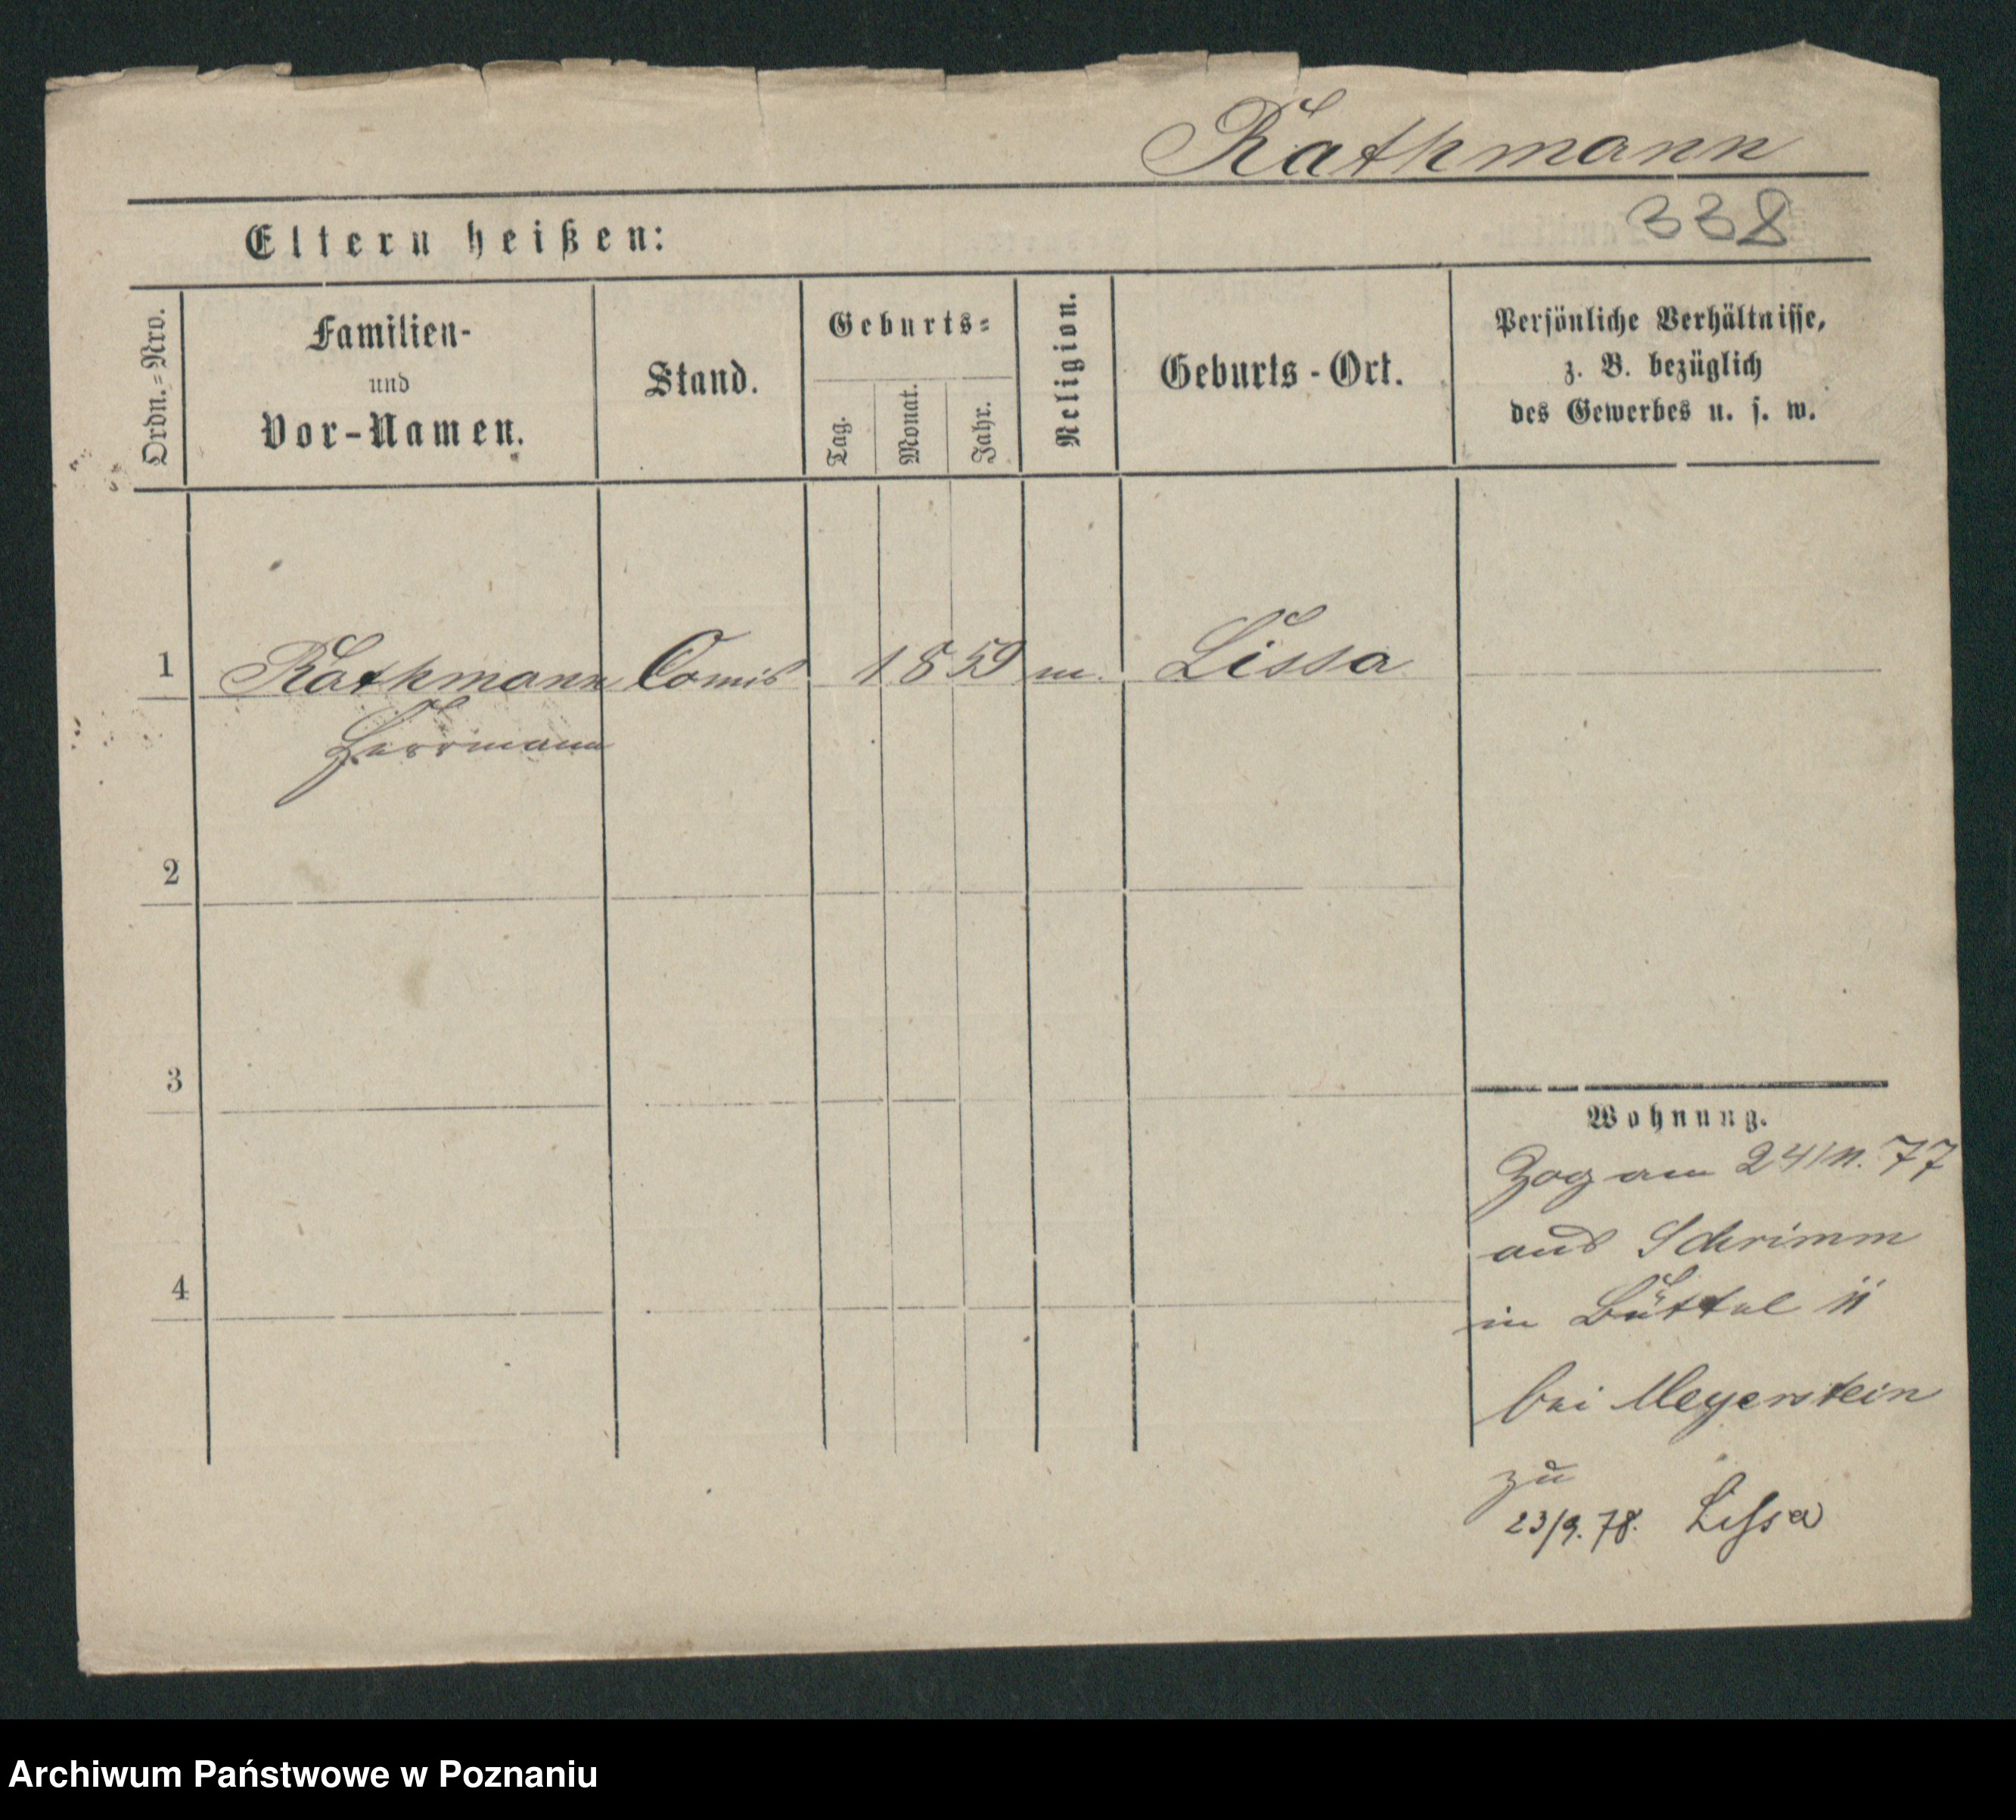 Rathmann
338
Eltern heißen:
Ordn.=Nro.
Familien-
und
Vor-Namen.
Stand.
Geburts=
Tag.
Monat.
Jahr.
Religion.
Geburts-Ort.
Persönliche Verhältnisse,
z. B. bezüglich
des Gewerbes u. s. w.
1 Rathmann Comis 1859 m. Lissa
Herrmann
2
3
4
Wohnung.
Zog am 24/11. 77
aus Schrimm
in Büttel
bei Meyerstein
zu
23/9. 78. Lissa
Archiwum Państwowe w Poznaniu